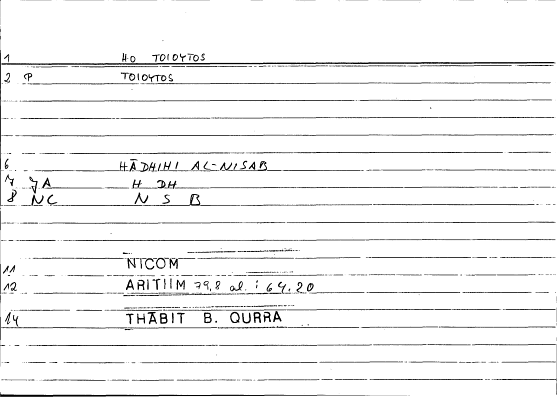 1 HO TOIOYTOS
2 P TOIOYTOS
6 HĀDHIHI AL-NISAB
7 JA H DH
8 NC N S B
11 NICOM
12 ARITIIM 79,8 al. : 64.20
14 THĀBIT B. QURRA